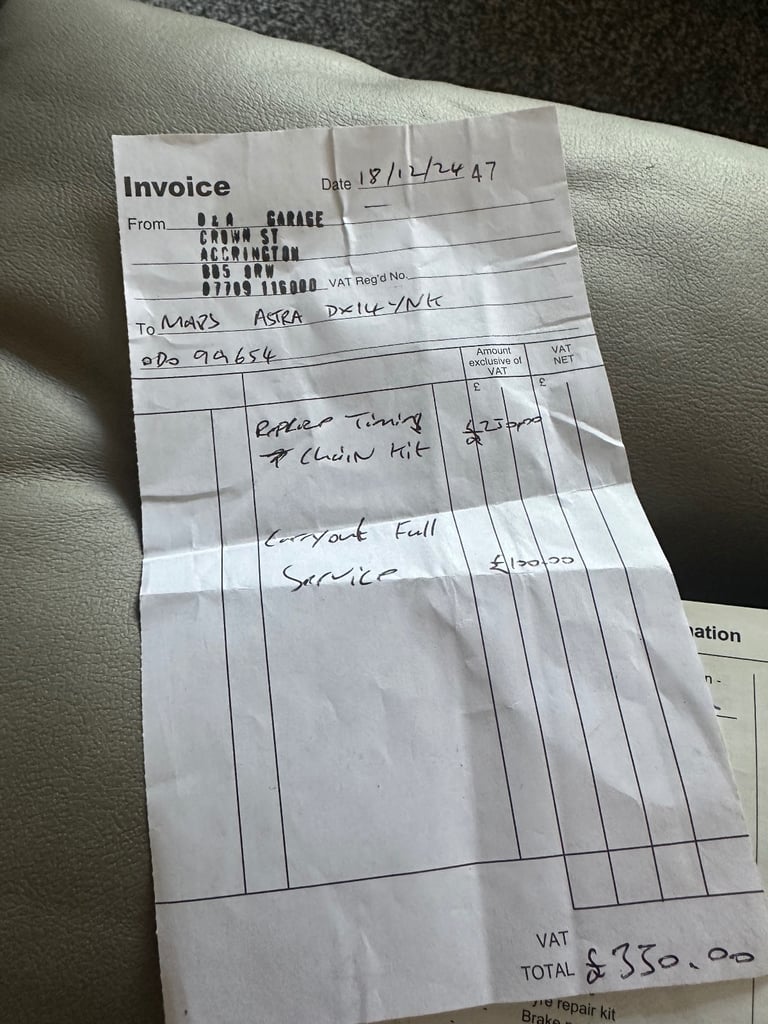 Invoice
Date 18/12/24 47
From D & A GARAGE
CROWN ST
ACCRINGTON
BB5 0RW
07709 116000 VAT Reg'd No.
To MAPS ASTRA DX14 YNK
ODO 99654
Amount exclusive of VAT
VAT NET
£ £
Replace Timing £230.00
Chain Kit
Carryout Full
Service £100.00
VAT
TOTAL £330.00
ation
n -
yre repair kit
Brake